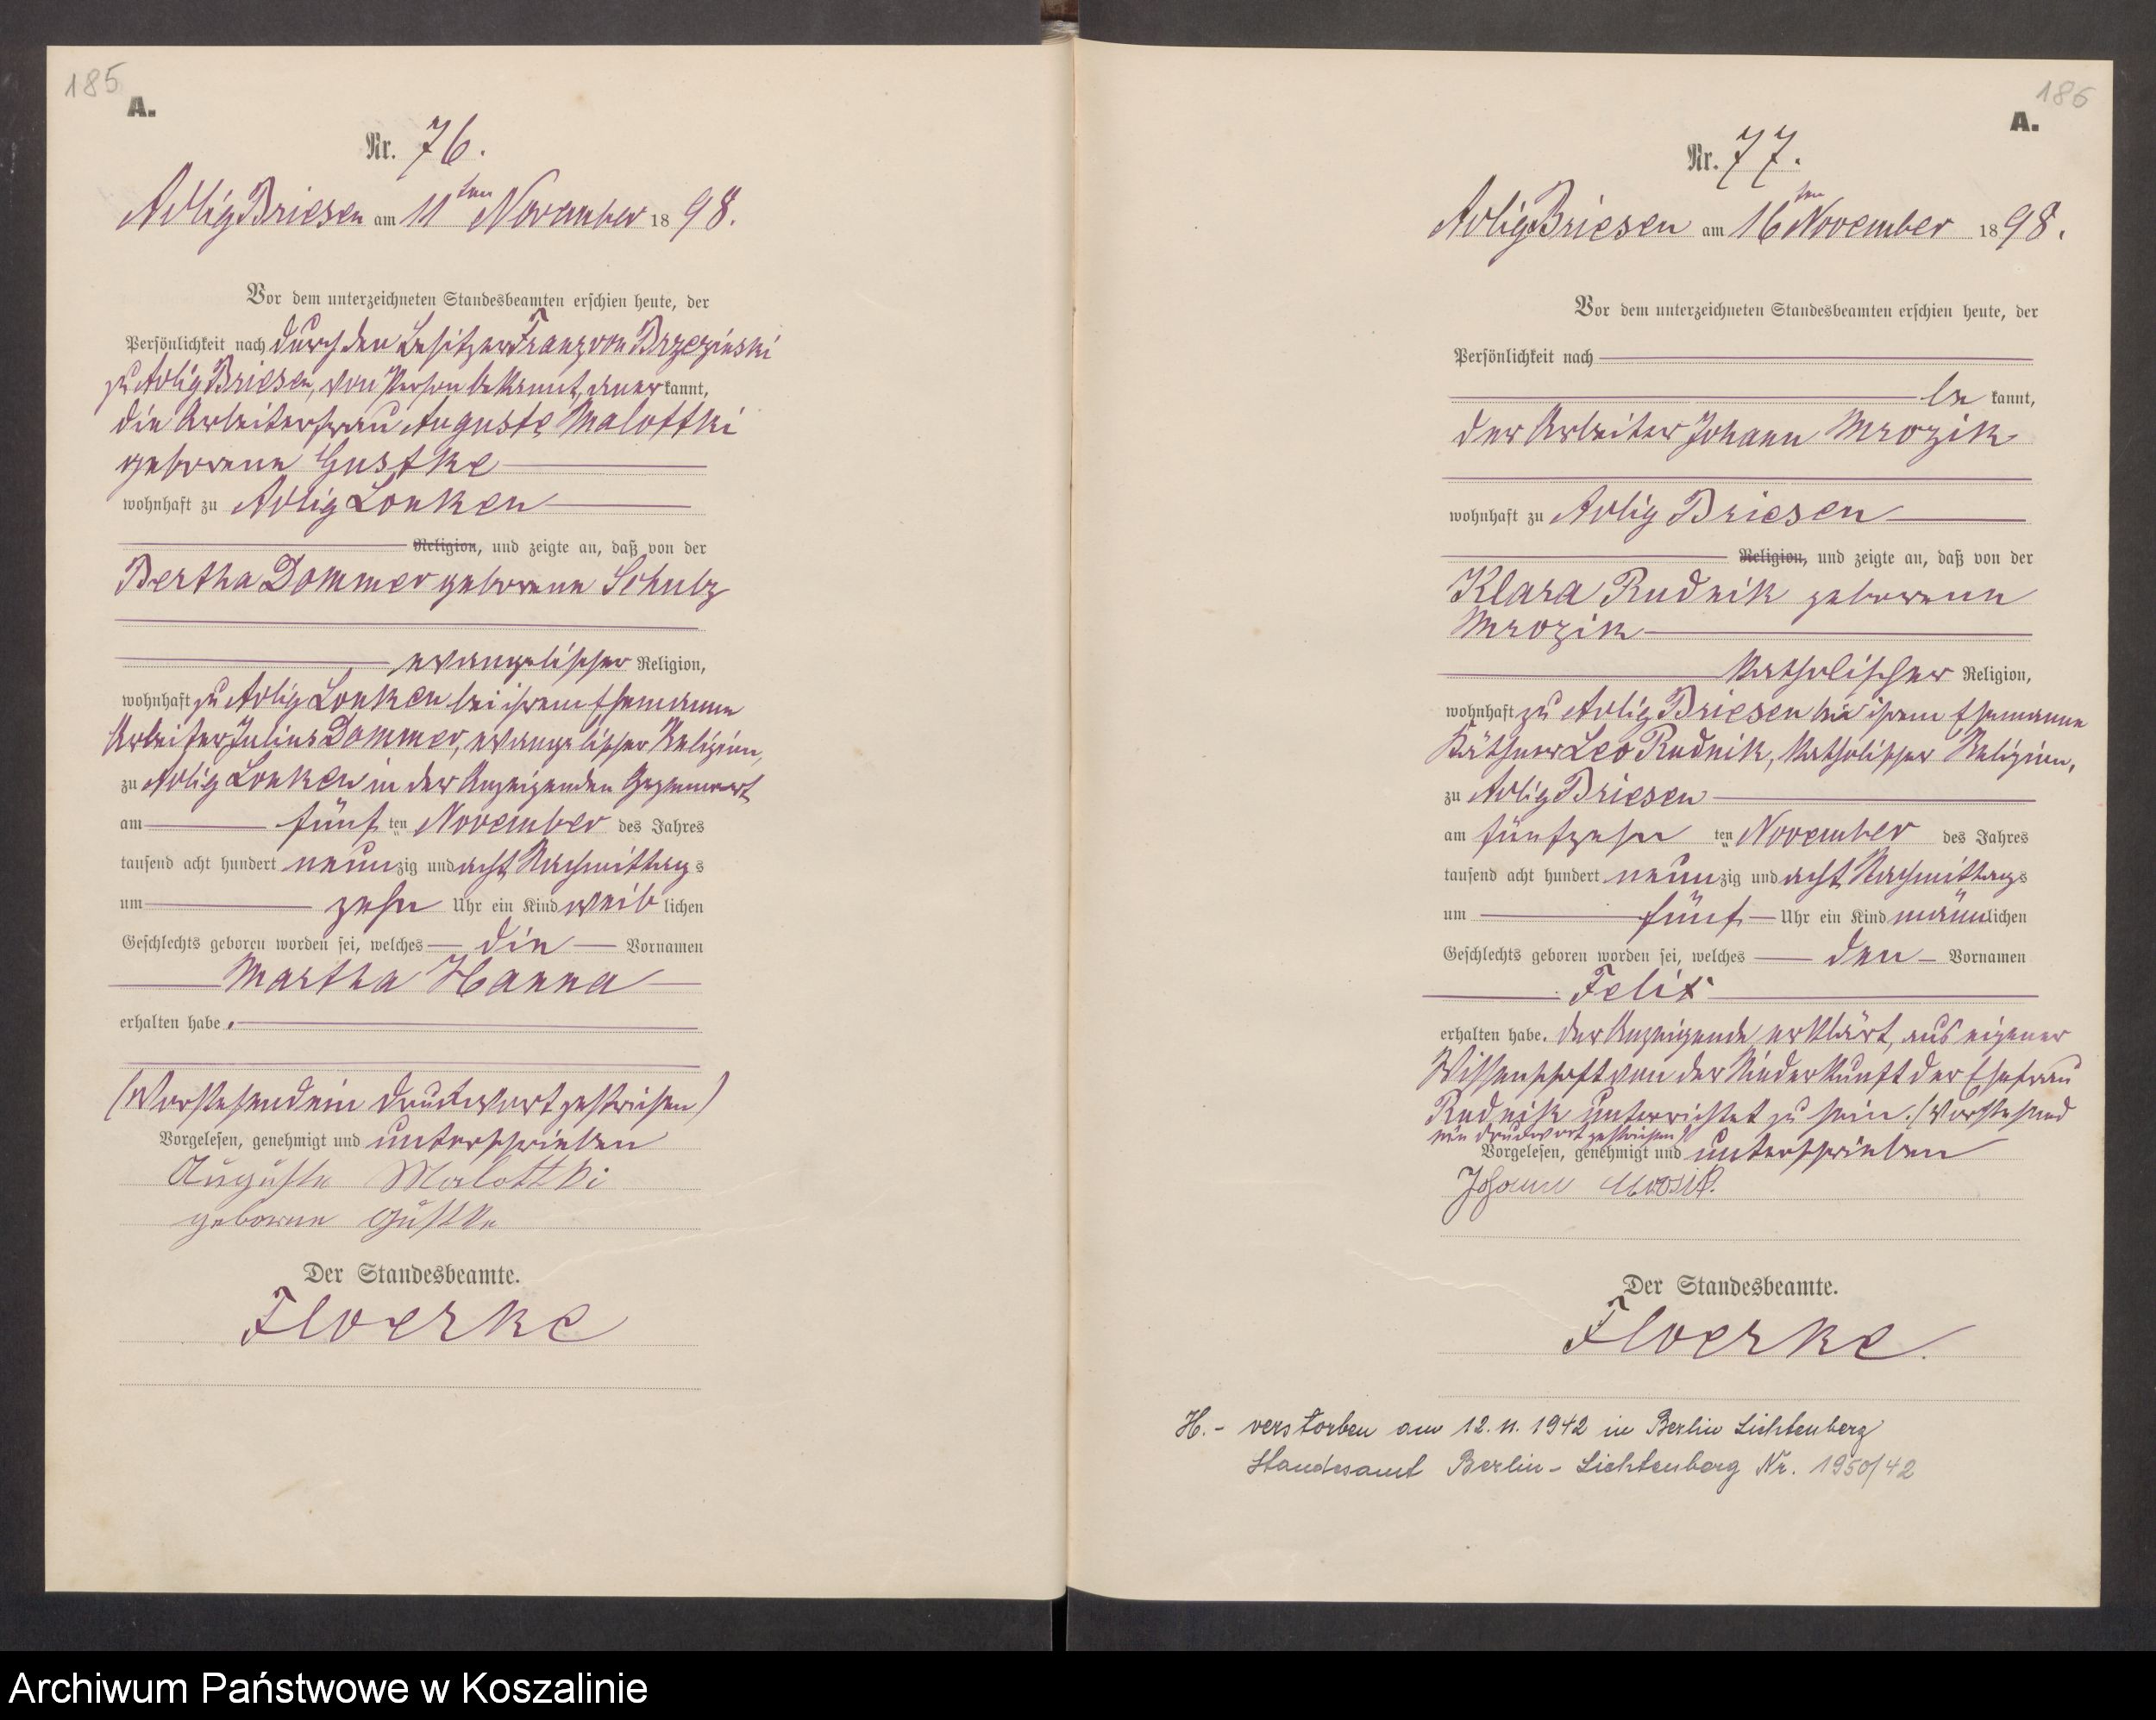 185
A.
Nr. 76.
Adlig Briesen am 11ten November 1898.
Vor dem unterzeichneten Standesbeamten erschien heute, der
Persönlichkeit nach durch den Besitzer Franz von Brzezinski
zu Adlig Briesen, von Person bekannt, anerkannt,
die Arbeiterfrau Auguste Malottki
geborene Gustke
wohnhaft zu Adlig Lonken
Religion, und zeigte an, daß von der
Bertha Dommer geborene Schulz
evangelischer Religion,
wohnhaft zu Adlig Lonken bei ihrem Ehemanne
Arbeiter Julius Dommer, evangelischer Religion,
zu Adlig Lonken in der Anzeigenden Gegenwart
am fünften November des Jahres
tausend acht hundert neunzig und acht Nachmittags
um zehn Uhr ein Kind weiblichen
Geschlechts geboren worden sei, welches die Vornamen
Martha Hanna
erhalten habe.
(Vorstehend ein Druckwort gestrichen)
Vorgelesen, genehmigt und unterschrieben
Auguste Malottki
geborne Gustke
Der Standesbeamte.
Floerke
186
A.
Nr. 77.
Adlig Briesen am 16ten November 1898.
Vor dem unterzeichneten Standesbeamten erschien heute, der
Persönlichkeit nach
bekannt,
der Arbeiter Johann Mrozik
wohnhaft zu Adlig Briesen
Religion, und zeigte an, daß von der
Klara Rudnik geborenen
Mrozik
katholischer Religion,
wohnhaft zu Adlig Briesen bei ihrem Ehemanne
Käthner Leo Rudnik, katholischer Religion,
zu Adlig Briesen
am fünfzehnten November des Jahres
tausend acht hundert neunzig und acht Nachmittags
um fünf Uhr ein Kind männlichen
Geschlechts geboren worden sei, welches den Vornamen
Felix
erhalten habe. Der Anzeigende erklärt, aus eigener
Wissenschaft von der Niederkunft der Ehefrau
Rudnik unterrichtet zu sein. (Vorstehend
ein Druckwort gestrichen)
Vorgelesen, genehmigt und unterschrieben
Johann Mrosik.
Der Standesbeamte.
Floerke.
H. - verstorben am 12. 11. 1942 in Berlin Lichtenberg
Standesamt Berlin - Lichtenberg Nr. 1950/42
Archiwum Państwowe w Koszalinie